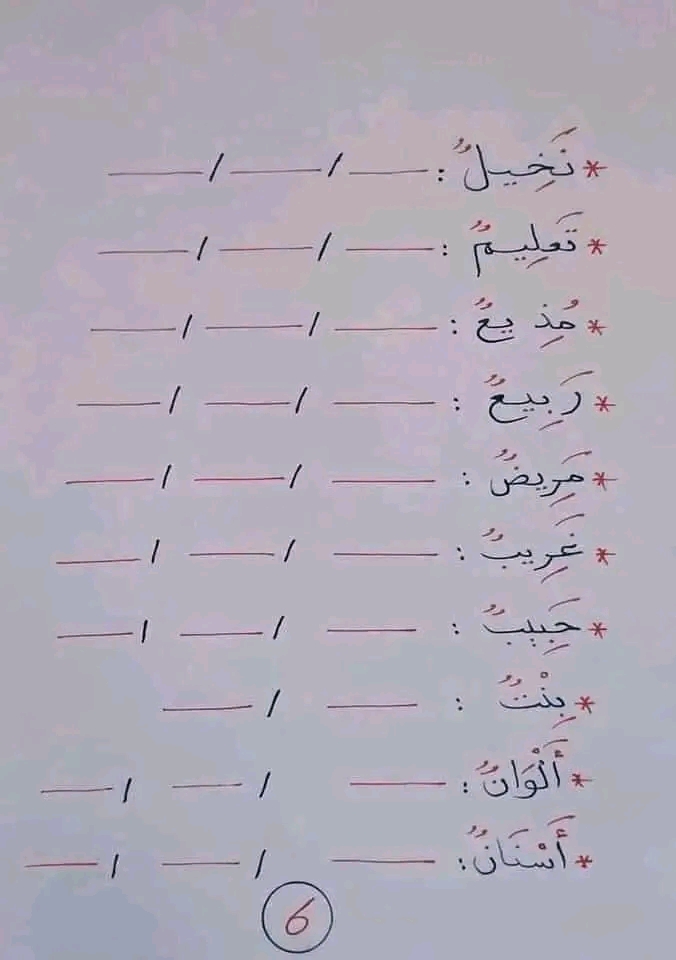 * نَخِيلٌ : ___ / ___ / ___
* تَعلِيمٌ : ___ / ___ / ___
* مُذِيعٌ : ___ / ___ / ___
* رَبِيعٌ : ___ / ___ / ___
* مَرِيضٌ : ___ / ___ / ___
* غَرِيبٌ : ___ / ___ / ___
* حَبِيبٌ : ___ / ___ / ___
* بِنْتٌ : ___ / ___
* أَلْوَانٌ : ___ / ___ / ___
* أَسْنَانٌ : ___ / ___ / ___
6